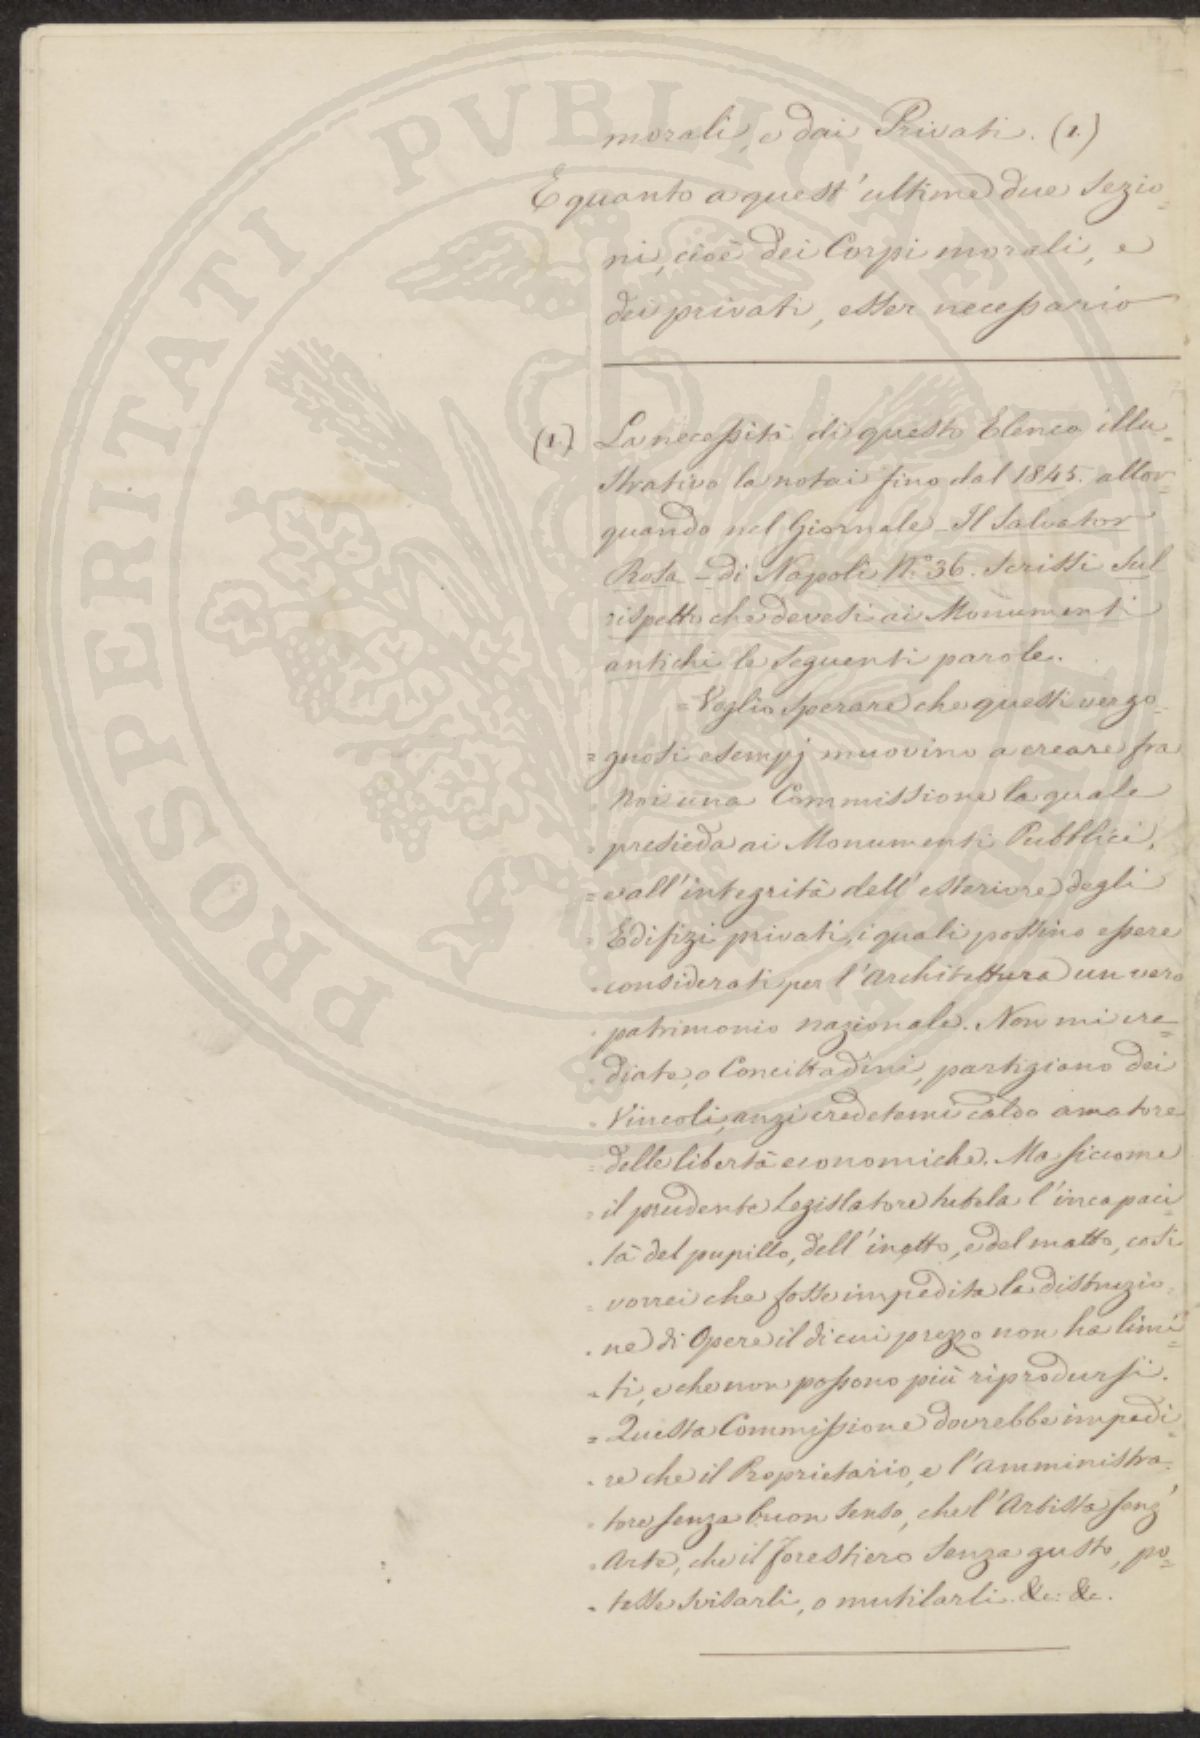 morali, e dai Privati. (1.)
E quanto a quest'ultime due Sezio=
ni, cioè dei Corpi morali, e
dei privati, esser necessario
(1.) La necessità di questo Elenco illu=
strativo la notai fino dal 1845. allor=
quando nel Giornale Il Salvator
Rosa - di Napoli N.° 36. scrissi sul
rispetto che devesi ai Monumenti
antichi le seguenti parole.
= Voglio sperare che questi vergo=
= gnosi esempj muovino a creare fra
= noi una Commissione la quale
= presieda ai Monumenti Pubblici,
= e all'integrità dell'esteriore degli
= Edifizi privati, i quali possino essere
= considerati per l'Architettura un vero
= patrimonio nazionale. Non mi cre=
= diate, o Concittadini, partigiano dei
= Vincoli, anzi credetemi caldo amatore
= delle libertà economiche. Ma siccome
= il prudente Legislatore tutela l'incapaci=
= tà del pupillo, dell'inetto, e del matto, così
= vorrei che fosse impedita la distruzio=
= ne di Opere il di cui prezzo non ha limi=
= ti, e che non possono più riprodursi.
= Questa Commissione dovrebbe impedi=
= re che il Proprietario, e l'amministra=
= tore senza buon senso, che l'Artista senz'
= Arte, che il forestiero senza gusto, po=
= tesse svisarli, o mutilarli. &c: &c.
PROSPERITATI PVBLICAE